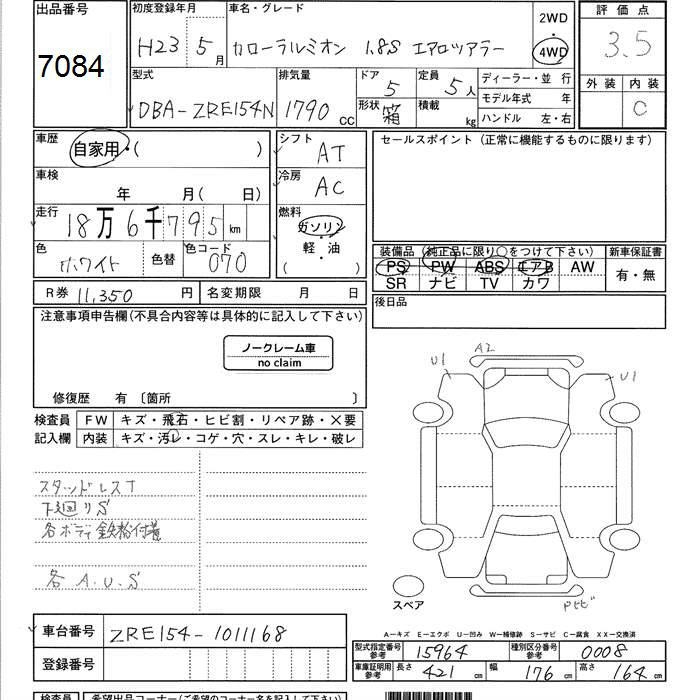 出品番号
7084
初度登録年月
H23 5月
車名・グレード
カローラルミオン 1.8S エアロツアラー
2WD
4WD
評価点
3.5
外装 内装
C
型式
DBA-ZRE154N
排気量
1790cc
ドア
5
形状
箱
定員
5人
積載
kg
ディーラー・並行
モデル年式 年
ハンドル 左・右
車歴
自家用・( )
車検
年 月( 日)
走行
18万6千795km
色
ホワイト
色替
色コード
070
シフト
AT
冷房
AC
燃料
ガソリン
軽・油
( )
セールスポイント(正常に機能するものに限ります)
装備品(純正品に限り○をつけて下さい)
PS PW ABS エアB AW
SR ナビ TV カワ
新車保証書
有・無
後日品
R券 11,350円
名変期限 月 日
注意事項申告欄(不具合内容等は具体的に記入して下さい)
ノークレーム車
no claim
修復歴 有〔箇所 〕
検査員
記入欄
FW キズ・飛石・ヒビ割・リペア跡・X要
内装 キズ・汚レ・コゲ・穴・スレ・キレ・破レ
スタッドレスT
下廻りS
各ボディ鉄粉付着
各A.U.S
A2
U1
U1
スペア
Pヒビ
車台番号
ZRE154-1011168
登録番号
A-キズ E-エクボ U-凹み W-補修跡 S-サビ C-腐食 XX-交換済
型式指定番号
参考
15964
種別区分番号
参考
0008
車庫証明用
参考
長さ 421cm
幅 176cm
高さ 164cm
検査員
希望出品コーナー(ご希望のコーナー名を記入下さい)